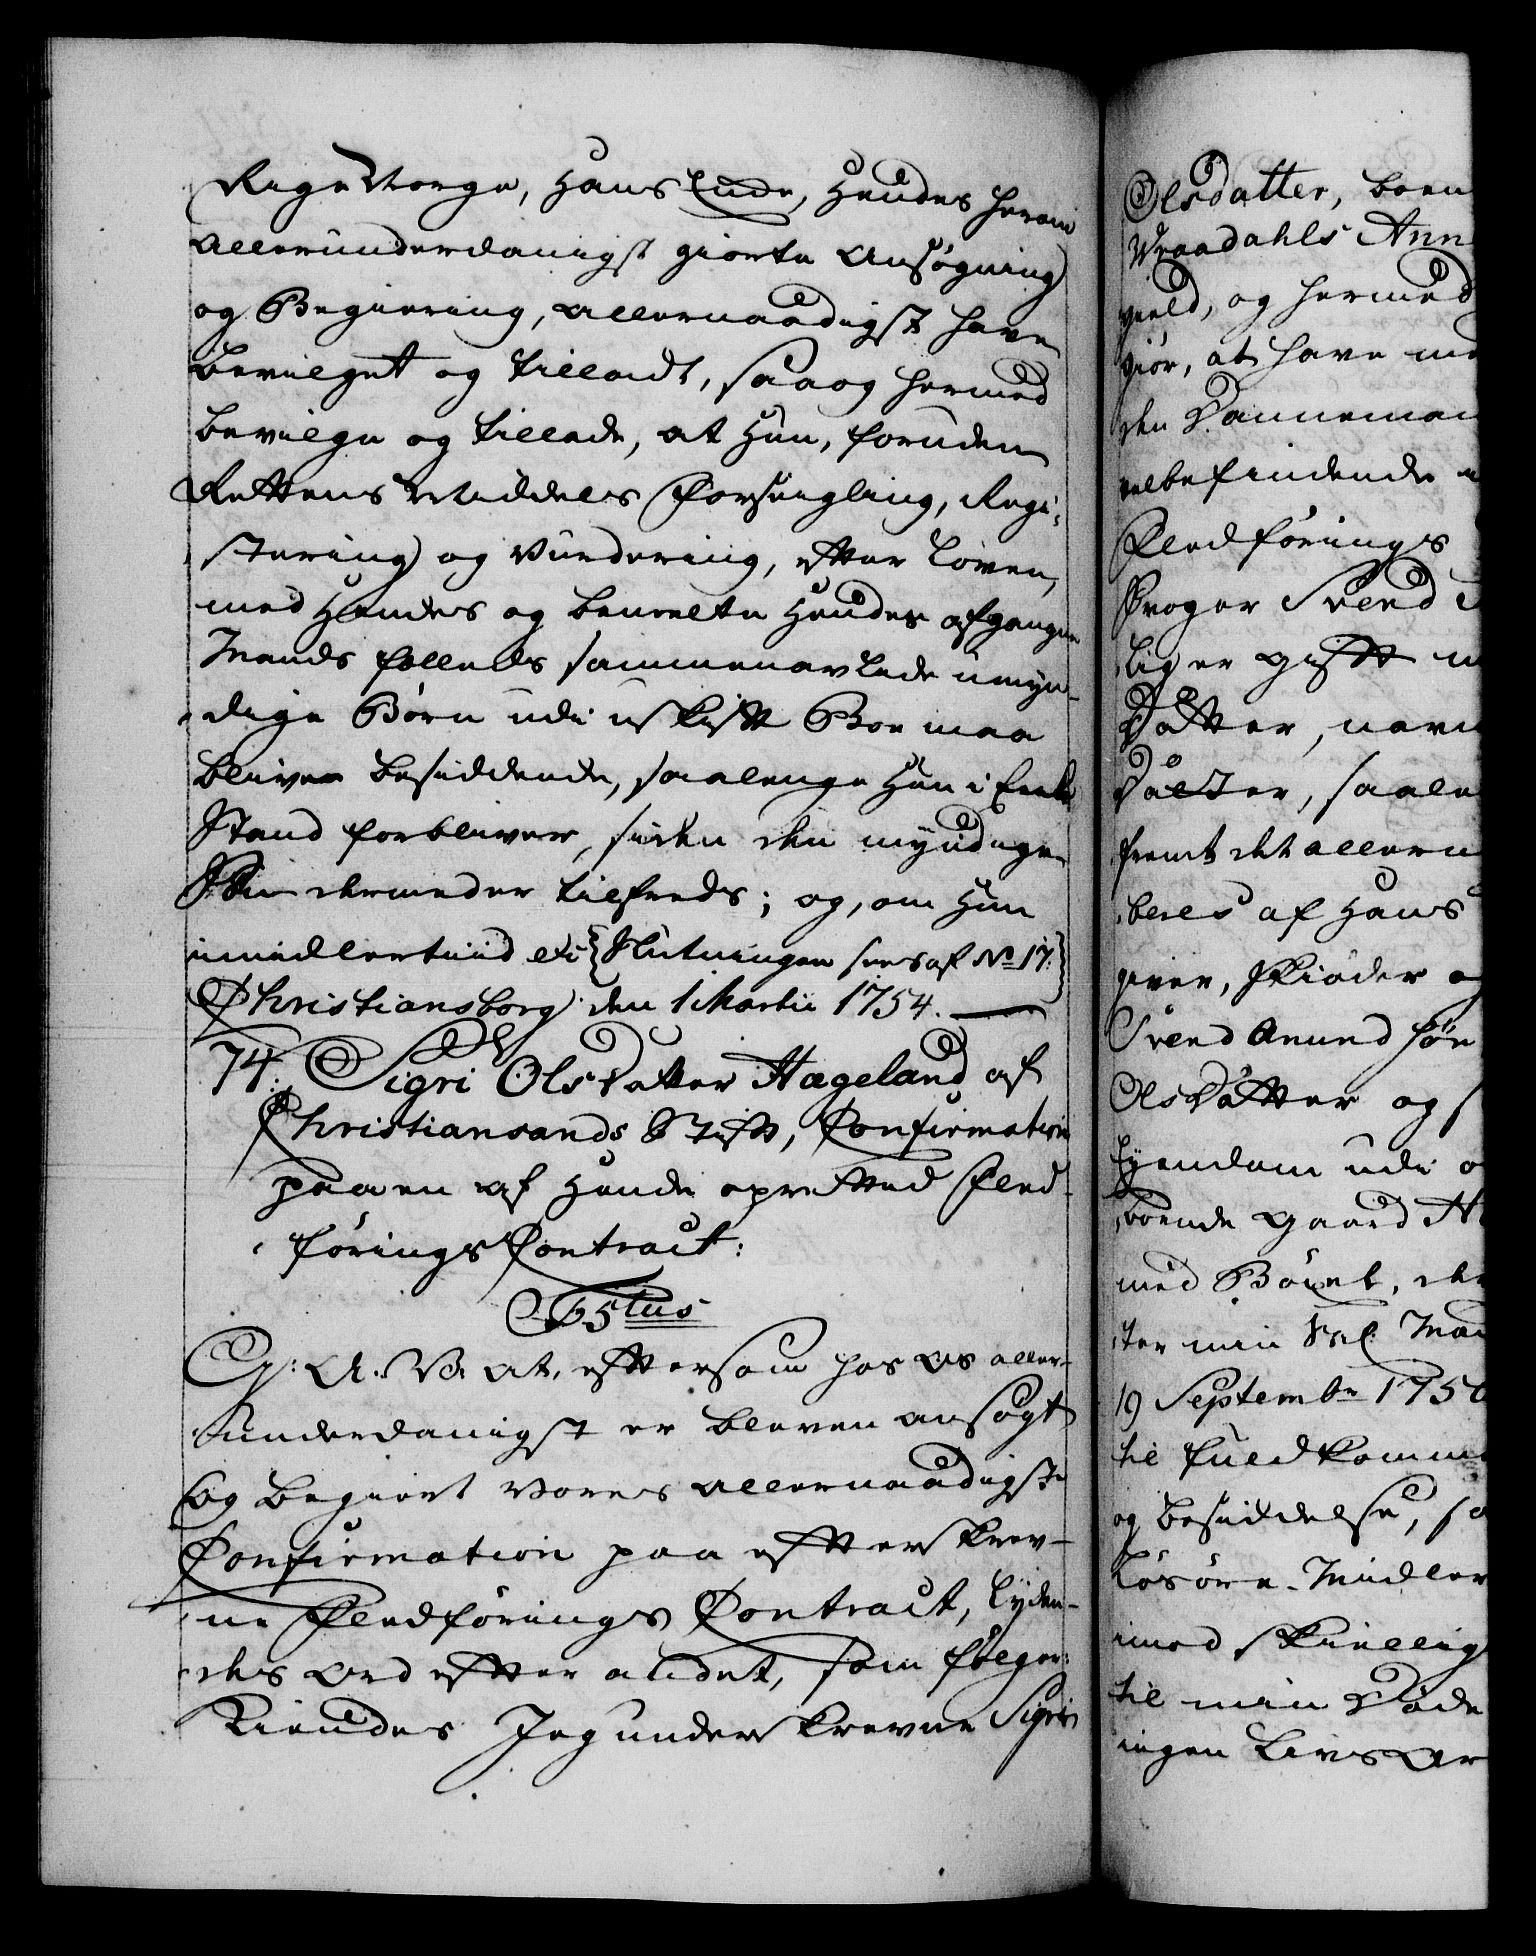 Rige Norge, Hans Enke, Hendes herom
allerunderdanigst giorte Ansøgning
og Begiering, allernaadigst have
bevilget og tilladt, saa og hermed
bevilge og tillade, at Hun, foruden
Rettens Middels Forseigling, Regi-
stering og Vurdering, efter Loven,
med Hendes og bemelte Hendes afgangne
Mands fælleds sammenavlede umyn-
dige Børn udi uskift Boe maa
blive besiddende, saalenge Hun i Enke
Stand forbliver, siden den myndige
Søn dermed er tilfreds; og, om Hun
imidlertiid etc {Slutningen sees af No 17.}
Christiansborg den 1 Martii 1754.
74. Sigri Olsdatter Hageland af
Christiansands Stift, Confirmation
paa en af Hende opretted Fled-
førings Contract:
F5tus
G: A: V: at, eftersom hos os aller-
underdanigst er bleven ansøgt
og begiert Vores allernaadigste
Confirmation paa efterskrev-
ne Fledførings Contract, lyden-
des ord efter andet, som følger:
Kiendes Jeg underskrevne Sigri
Olsdatter, boen
Vraadahls Ann
gield, og hermed
giør, at have
den Dannemand
velbefindende
Fledførings
Broger Svend
lig er gift
Datter, navn
Datter, saale
fremt det allern
beles af Hans
giver, skiøder og
Svend Amundsøn
Olsdatter og
Eyendom udi
boende Gaard
med Bøxel, de
ter min Sal: Man
19 Septembr 1750
til fuldkomme
og besiddelse, sa
Løsøre-Midler
imod skiellig
til min Døde
ingen Livs Ar